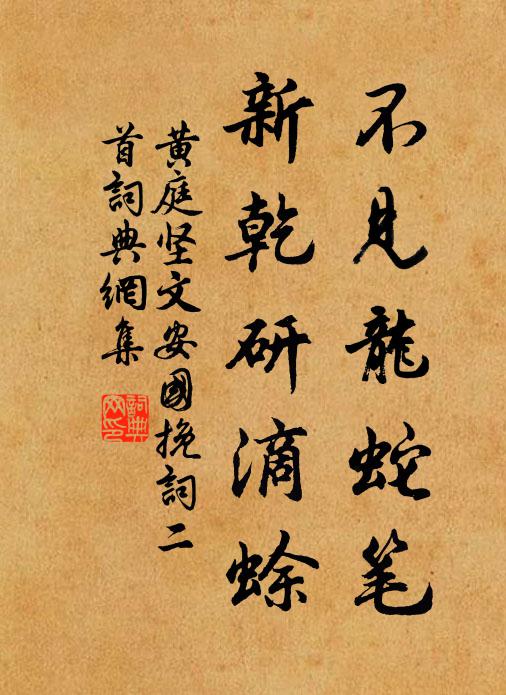 不見龍蛇笔
新乾研滴蜍
黃庭坚文安國挽詞二
首詞典網集
詞典
网印